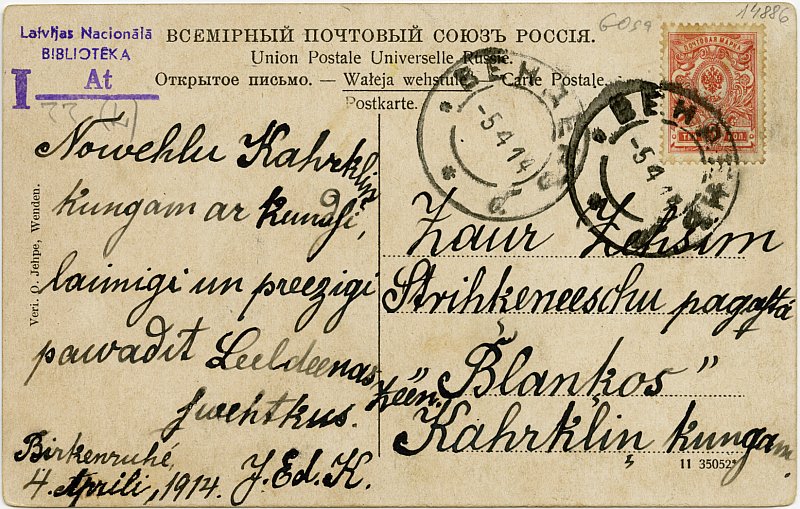 14886
Latvijas Nacionālā
BIBLIOTĒKA
At
I
ВСЕМІРНЫЙ ПОЧТОВЫЙ СОЮЗЪ РОССІЯ.
Union Postale Universelle Russie.
Открытое письмо. — Wałeja wehstule — Carte Postale.
Postkarte.
ПОЧТОВАЯ МАРКА
ВЕНДЕНЪ
-5 4 14
ВЕНДЕНЪ
-5 4 14
Nowehlu Kahrkliņ
kungam ar kundsi,
laimigi un preezigi
pawadit Leeldeenas
swehtkus.
Birkenruhé,
4. Aprili, 1914. J. Ed. K.
Zaur Zehsim
Strihkeneeschu pagastā
"Blankos"
Zeen. Kahrkliņ kungam.
Verl. O. Jehpe, Wenden.
11 35052*